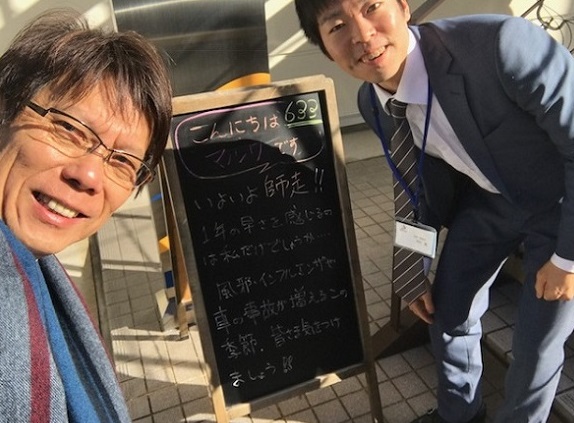 633
こんにちは
マルサンです
いよいよ師走!!
1年の早さを感じるの
は私だけでしょうか…
風邪・インフルエンザや
車の事故が増えるこの
季節、皆さま気をつけ
ましょう!!